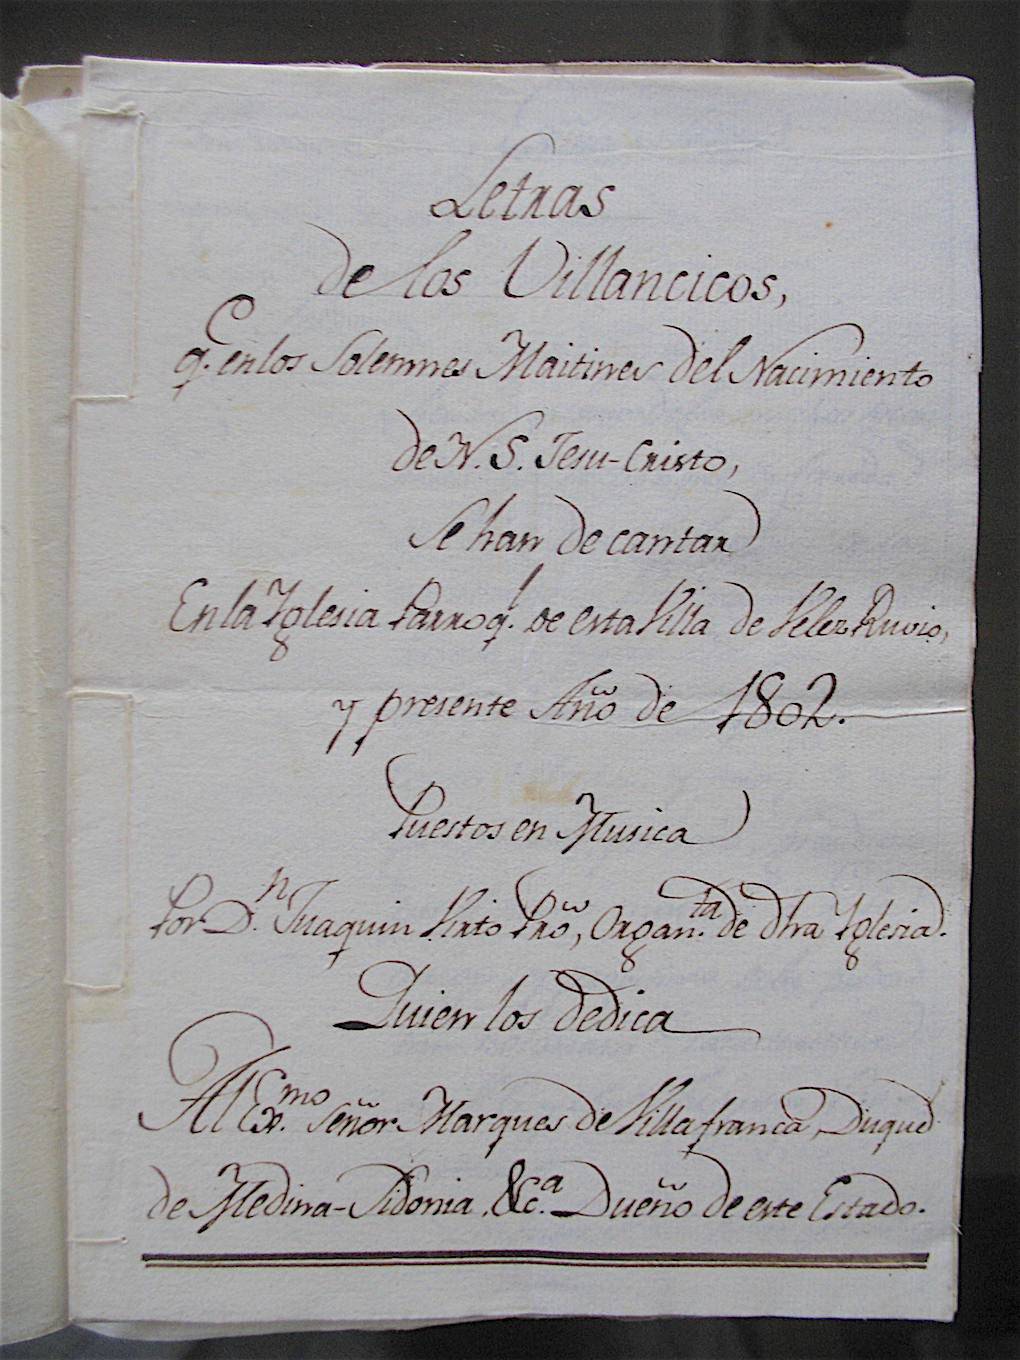 Letras
de los Villancicos,
q.e en los Solemnes Maitines del Nacimiento
de N. S. Jesu-Cristo,
Se han de cantar
En la Yglesia Parroq.l de esta Villa de Velez Ruvio,
y presente Año de 1802.
Puestos en Musica
Por D.n Juaquin Pro, Organ.ta de dha Yglesia.
Quien los dedica
Al Ex.mo Señor Marques de Villafranca, Duque
de Medina-Sidonia, &c.a Dueño de este Estado.